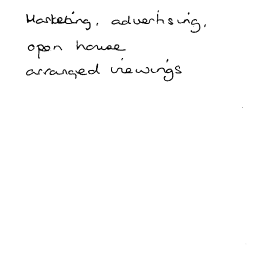 Marketing, advertising,
open house
arranged viewings